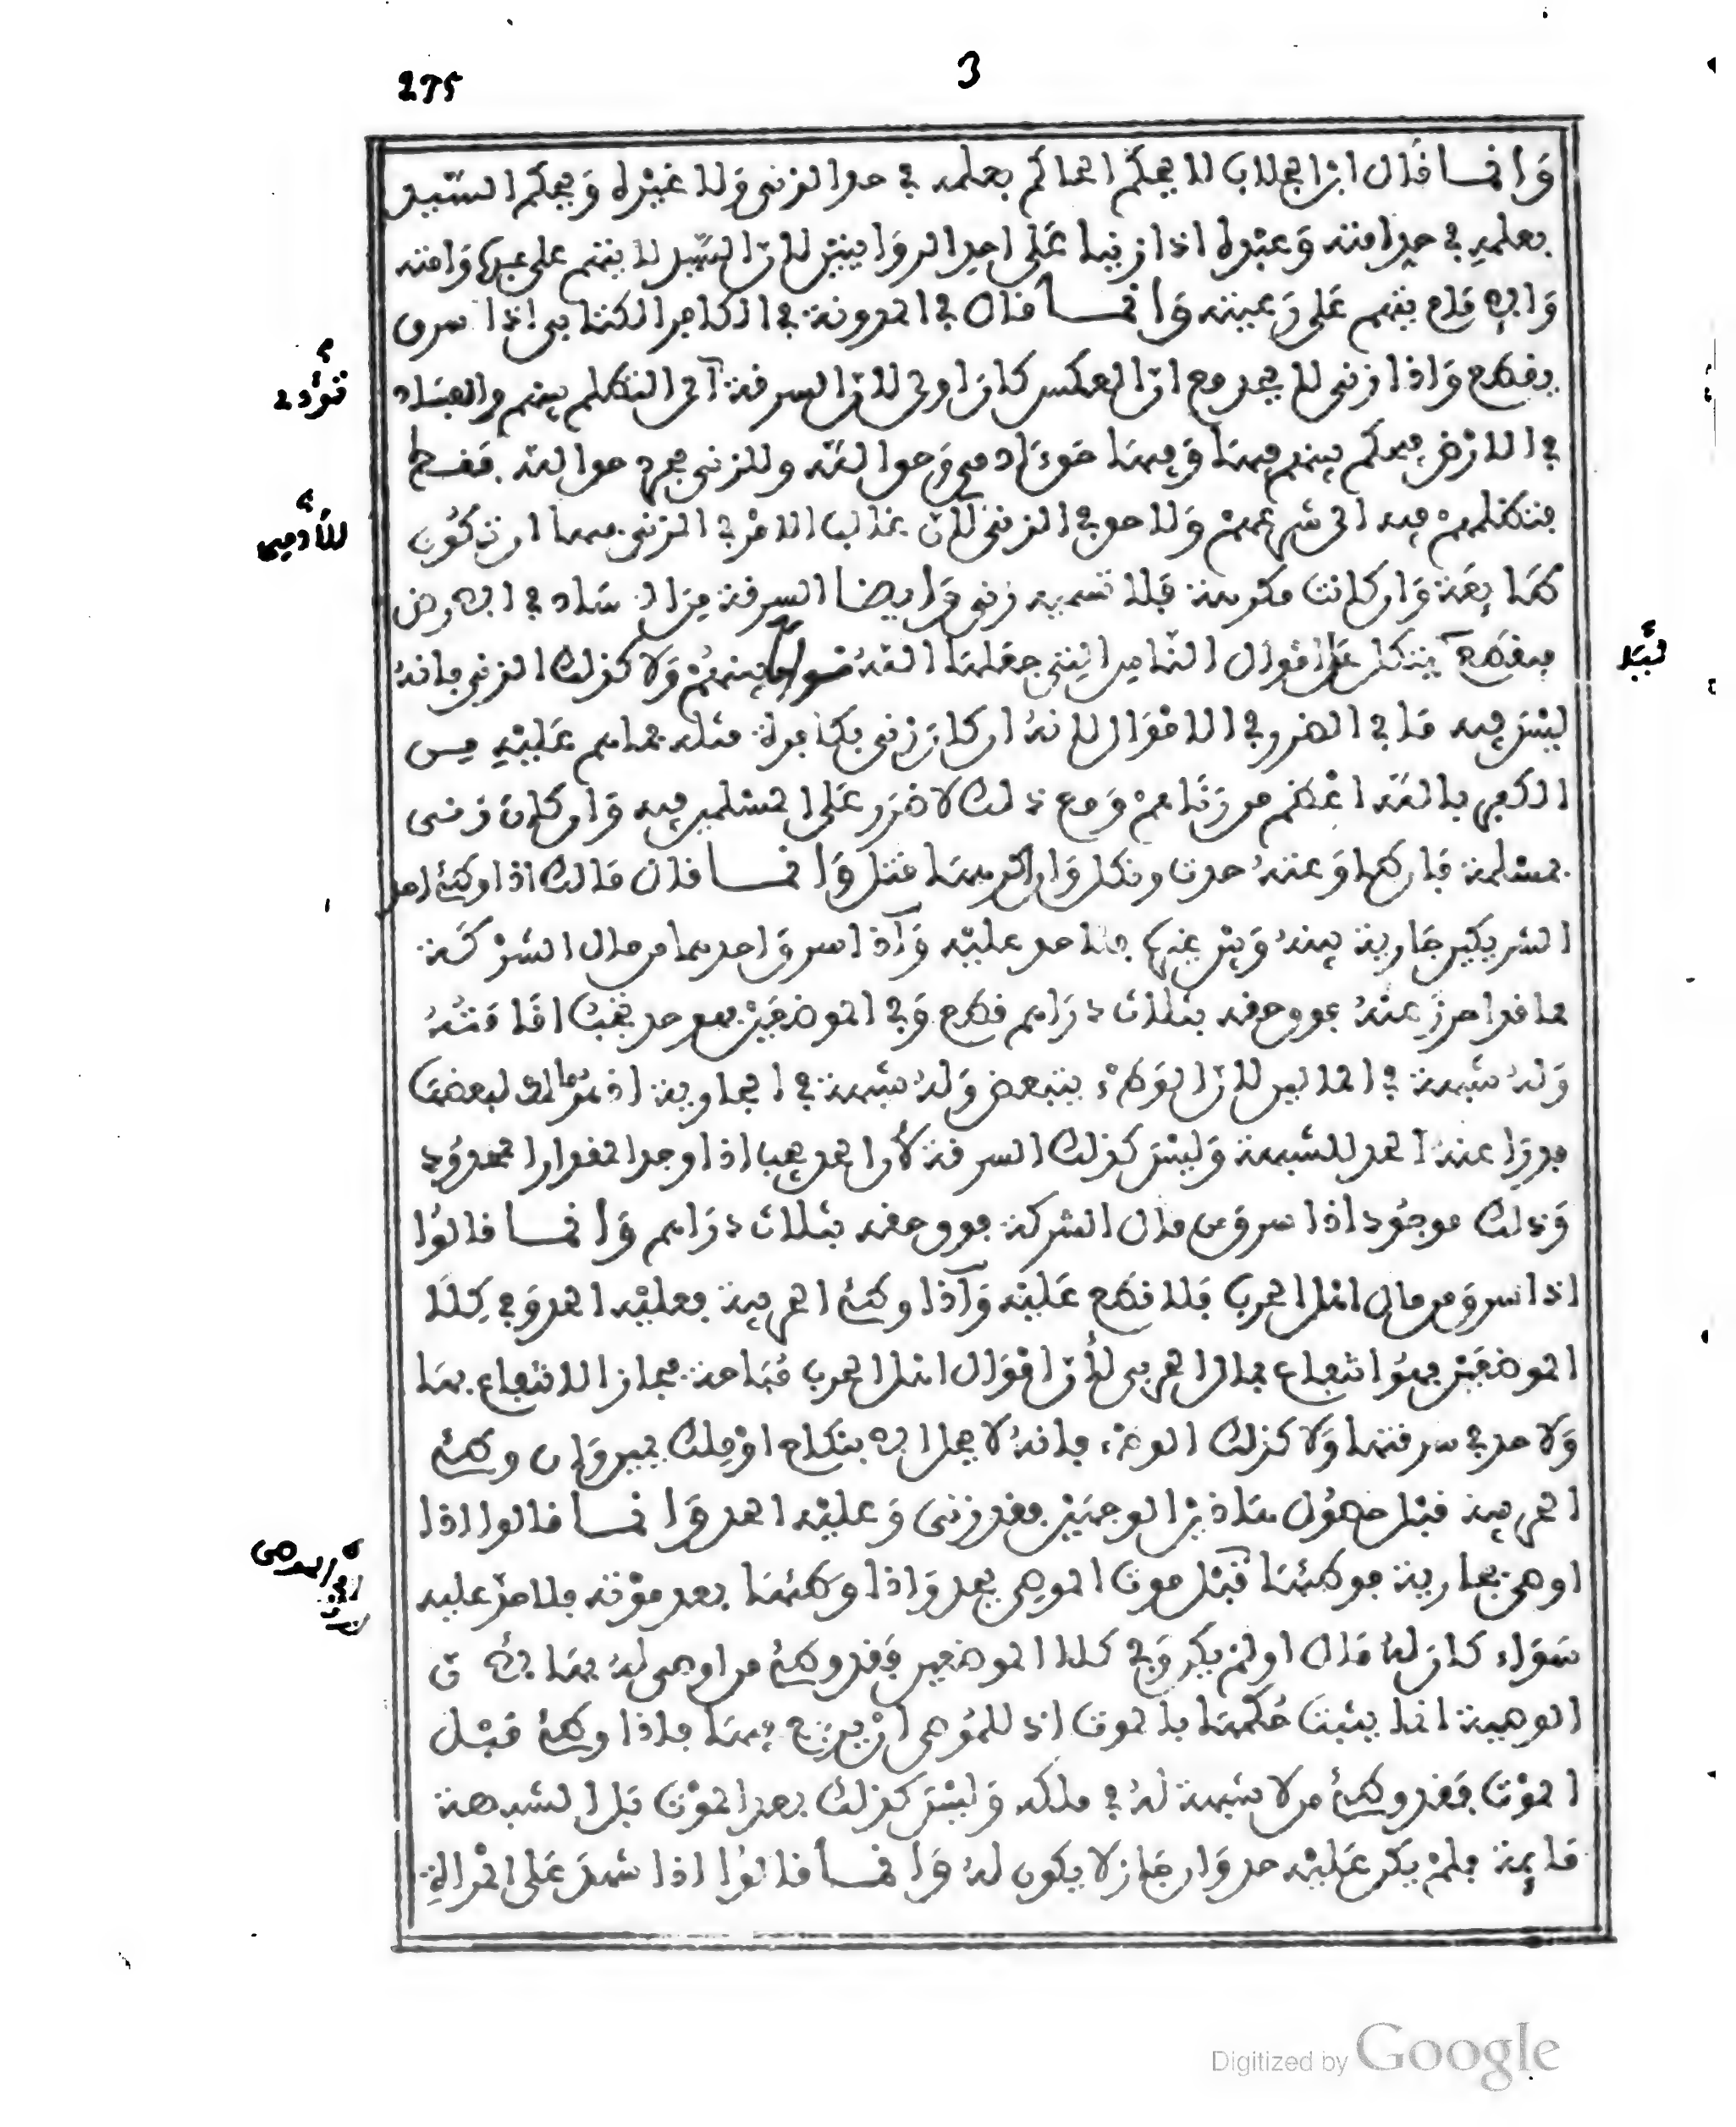 275
3
وَانما قال ابن الجلاب لا يحكم الحاكم بعلمه في حد الزنى ولا غيره ويحكم السيد
بعلمه في حد امته وعبده اذا زنيا على احدى الروايتين لان السيد لا يتهم على عبده وامته
والحاكم يتهم على رعيته وانما قال في المدونة في الكافر الكتابي اذا سرق
يقطع واذا زنى لا يحد مع ان العكس كان اولى لان السرقة الى التظلم بينهم والفساد
في الارض فيحكم بينهم فيها وفيها حق ادمي وحق الله وللزنى مجرد حق الله فقط
فنكلهم فيه الى شرعهم ولا حق في الزنى لان غالب الامر في الزنى فيها ان تكون
مطاوعة وان كانت مكرهة فلا تسميه زنى وايضا السرقة من الفساد في الارض
فيقطع ليلا اموال الناس التي جعلها الله بينهم ولا كذلك الزنى فانه
ليس فيه ما في الضرر في الاموال لانه ان كان زنى بكافرة مثله فما هم عليه من
الكفر بالله اعظم من زناهم ومع ذلك لا ضرر على المسلمين فيه وان كان زنى
بمسلمة فان طاوعته حدت ونكل وان اكرهها قتل وانما قال مالك اذا وطئ احد
الشريكين جارية بينه وبين غيره فلا حد عليه واذا سرق احدهما من مال الشركة
مما قد احرز عنه فوق حقه بثلاث دراهم قطع وفي الموضعين فهو حد يجب اقامته
وله شبهة في المالين لان الوطء يتبعض وله شبهة في الجارية اذ هو مالك لبعضها
فدرانا عنه الحد للشبهة وليس كذلك السرقة لان الحد يجب اذا وجد المقدار المحدود
وذلك موجود اذا سرق من مال الشركة فوق حقه بثلاث دراهم وانما قالوا
اذا سرق من مال اهل الحرب فلا قطع عليه واذا وطئ الحربية فعليه الحد وفي كلا
الموضعين فهو انتفاع بمال الحربي لان اموال اهل الحرب مباحة فجاز الانتفاع بها
ولا حد في سرقتها ولا كذلك الوطء فانه لا يحل الا بنكاح او ملك يمين وان وطئ
الحربية قبل حصول هاذين الوجهين فقد زنى وعليه الحد وانما قالوا اذا
اوصى بجارية فوطئها قبل موت الموصي يحد واذا وطئها بعد موته فلا حد عليه
سواء كان له مال او لم يكن وفي كلا الموضعين فقد وطئ من اوصي له بها لان
الوصية انما يثبت حكمها بالموت اذ للموصي ان يرجع فيها فاذا وطئ قبل
الموت فقد وطئ من لا شبهة له في ملكه وليس كذلك بعد الموت فان الشبهة
قايمة فلم يكن عليه حد وان جاز لا يكون له وانما قالوا اذا شهد على امراة
تؤدي
للآدمي
ليلا
Digitized by Google